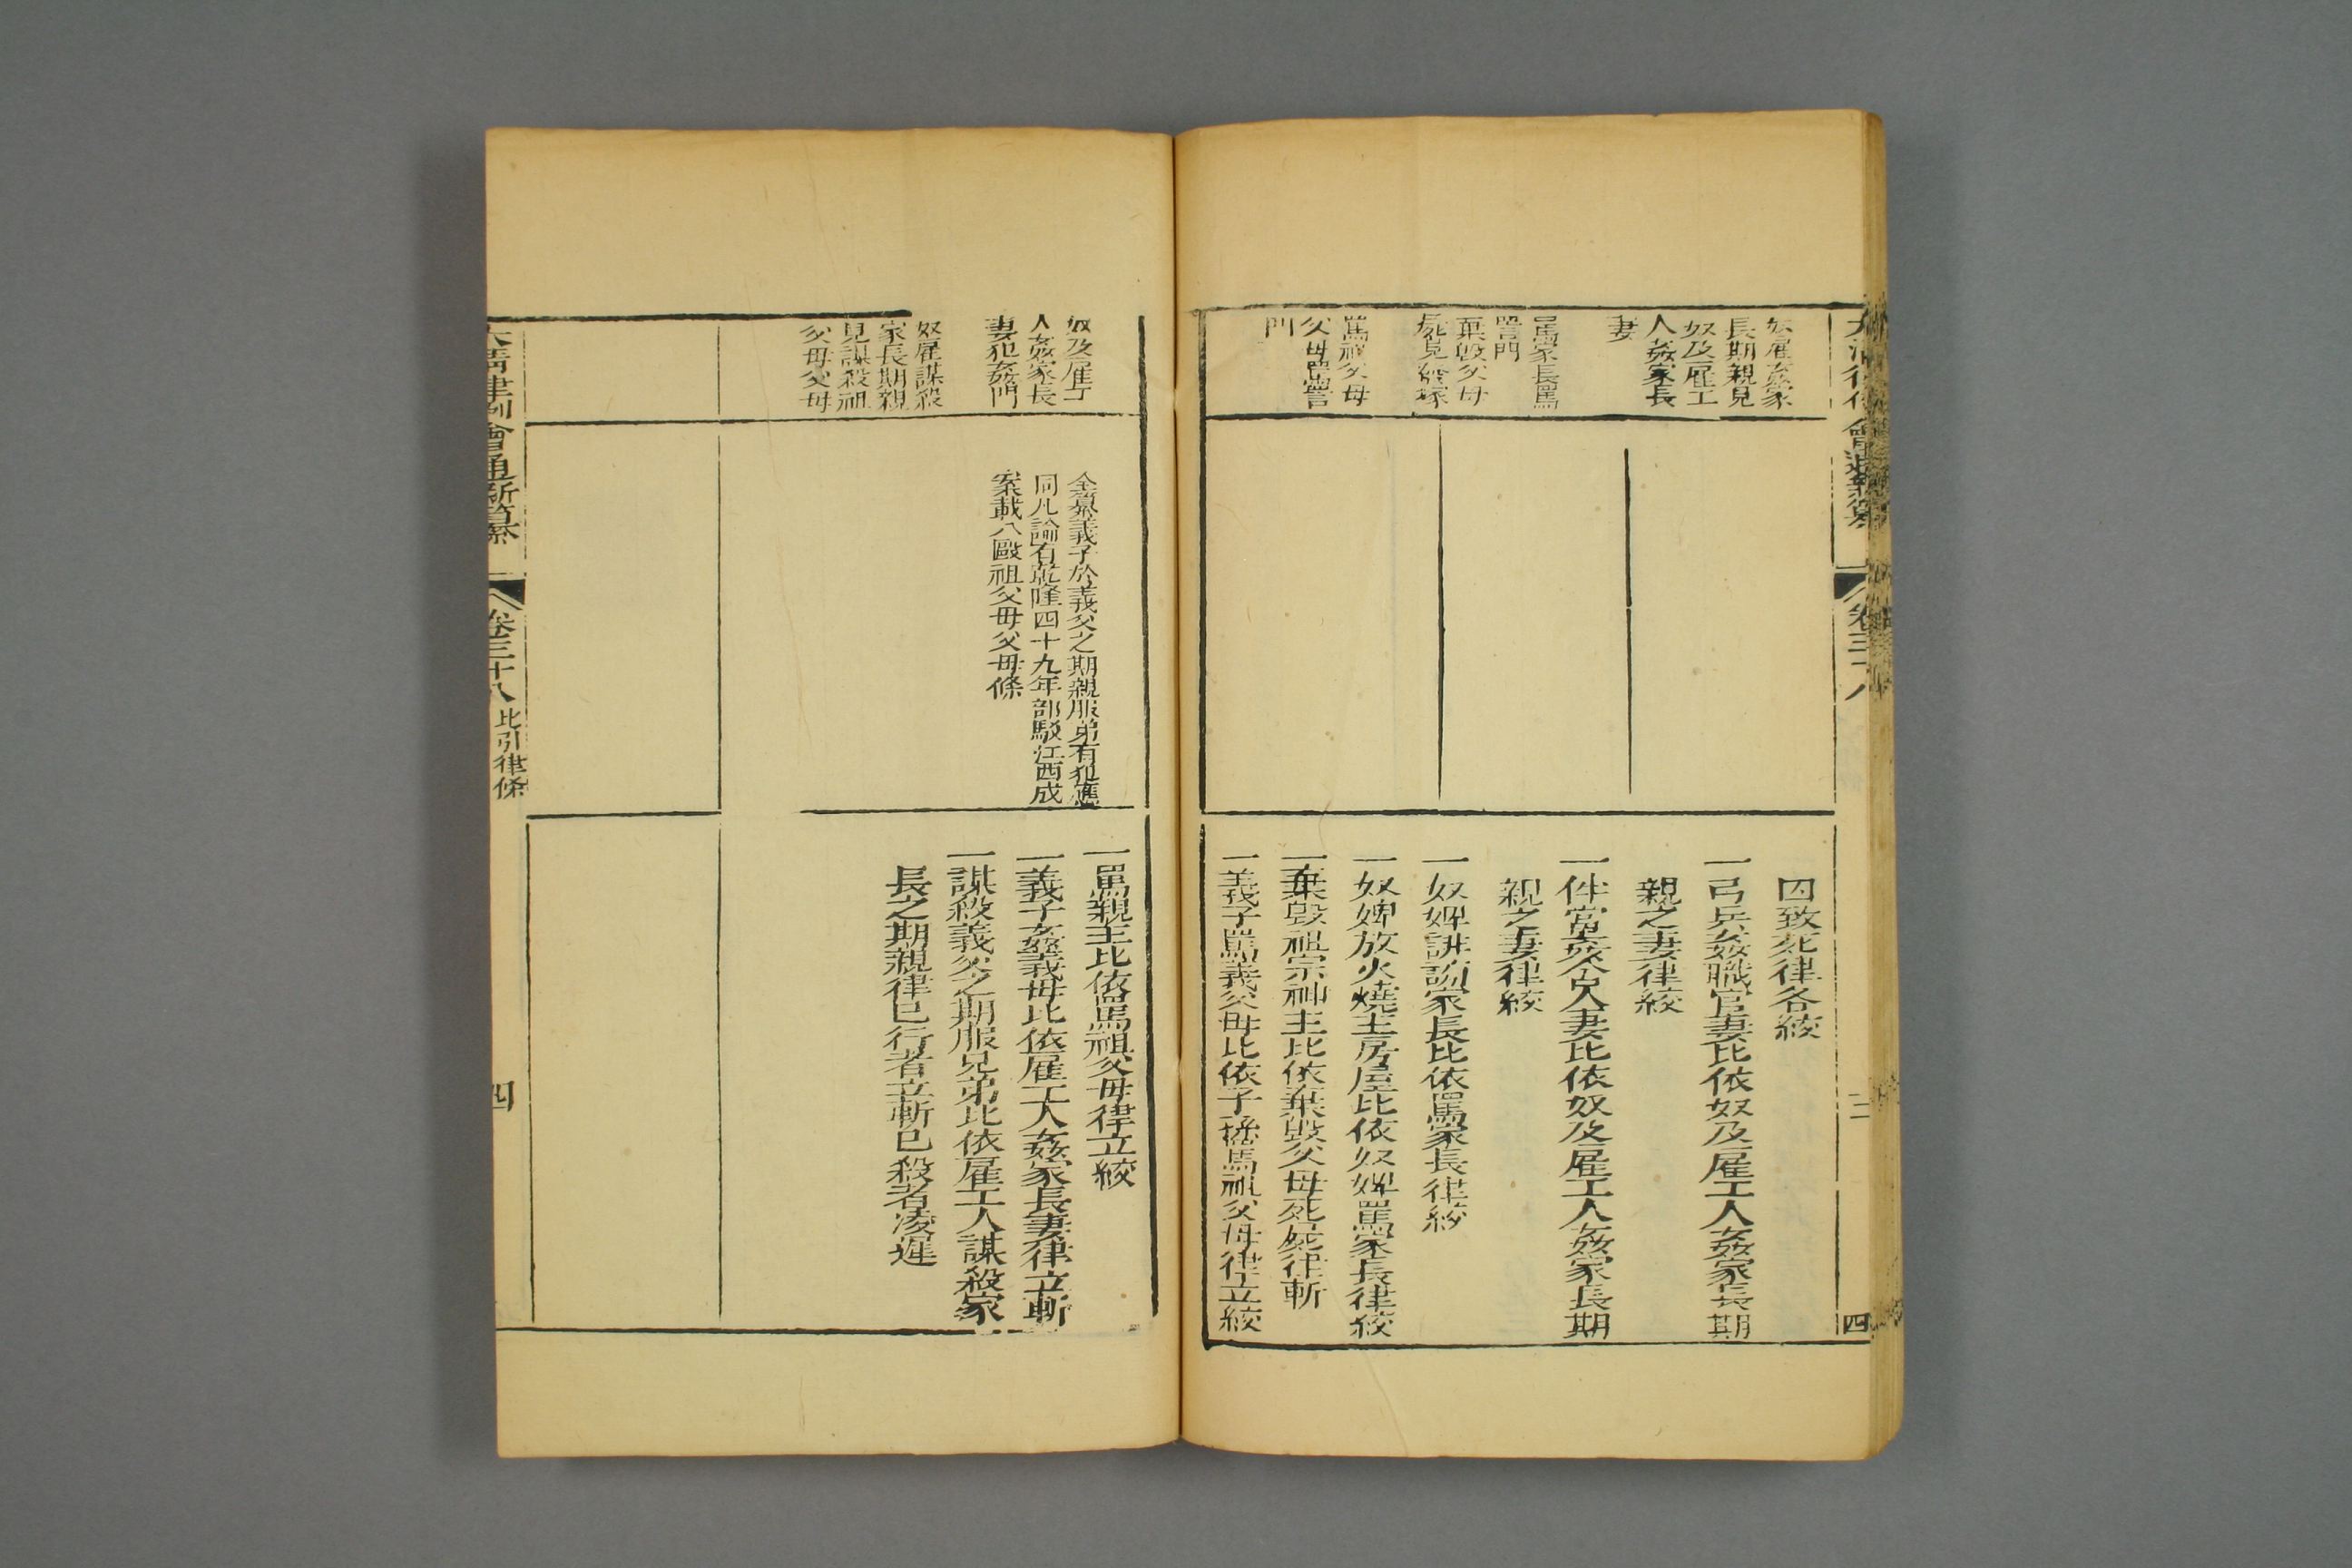 大清律例會通新纂
卷三十八
四
奴雇姦家
長期親見
奴及雇工
人姦家長
妻
罵家長罵
詈門
棄毀父母
死屍見發塚
罵祖父母
父母罵詈
門
囚致死律各絞
一弓兵姦職官妻比依奴及雇工人姦家長期
親之妻律絞
一伴當姦舍人妻比依奴及雇工人姦家長期
親之妻律絞
一奴婢誹謗家長比依罵家長律絞
一奴婢放火燒主房屋比依奴婢罵家長律絞
一棄毀祖宗神主比依棄毀父母死屍律斬
一義子罵義父母比依子孫罵祖父母律立絞
奴及雇工
人姦家長
妻犯姦門
奴雇謀殺
家長期親
見謀殺祖
父母父母
全纂義子於義父之期親服弟有犯應
同凡論有乾隆四十九年部駁江西成
案載入毆祖父母父母條
一罵親王比依罵祖父母律立絞
一義子姦義母比依雇工人姦家長妻律立斬
一謀殺義父之期服兄弟比依雇工人謀殺家
長之期親律已行者立斬已殺者凌遲
大清律例會通新纂
卷三十八
比引律條
四